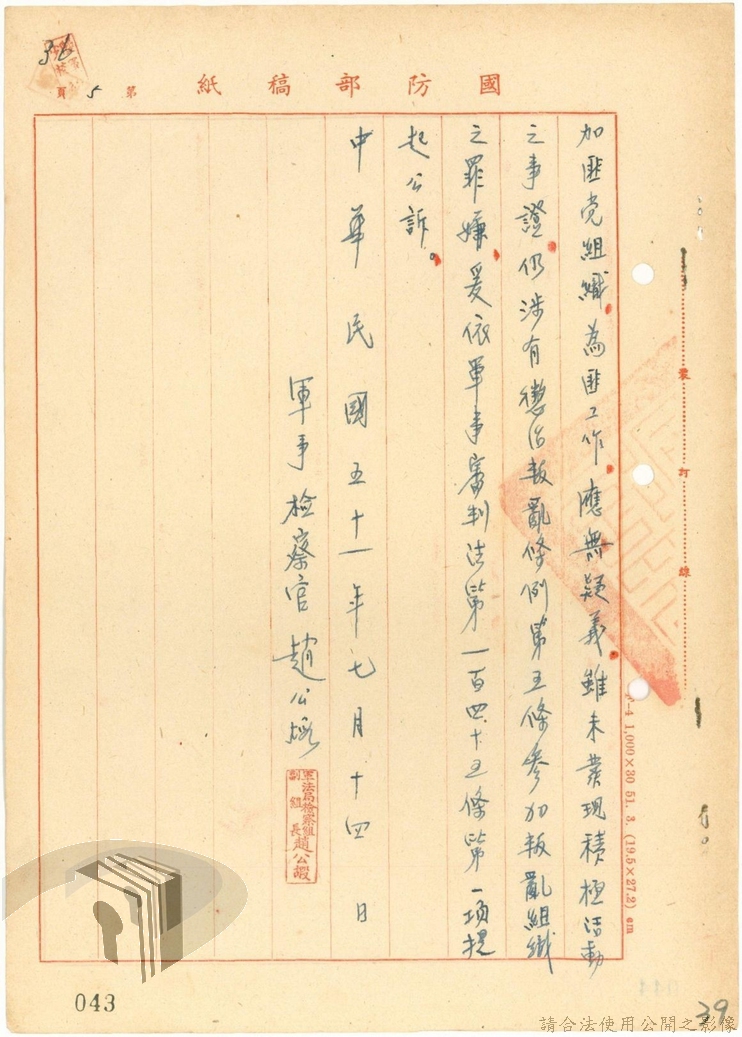 國防部稿紙
第5頁
36
加匪党組織為匪工作應無疑義雖未發現積極活動
之事證仍涉有懲治叛亂條例第五條參加叛亂組織
之罪嫌爰依軍事審判法第一百四十五條第一項提
起公訴。
中華民國五十一年七月十四日
軍事檢察官趙公嘏
軍法局檢察組
副組長趙公嘏
裝訂線
1,000×30 51. 3. (19.5×27.2) cm
043
39
請合法使用公開之影像